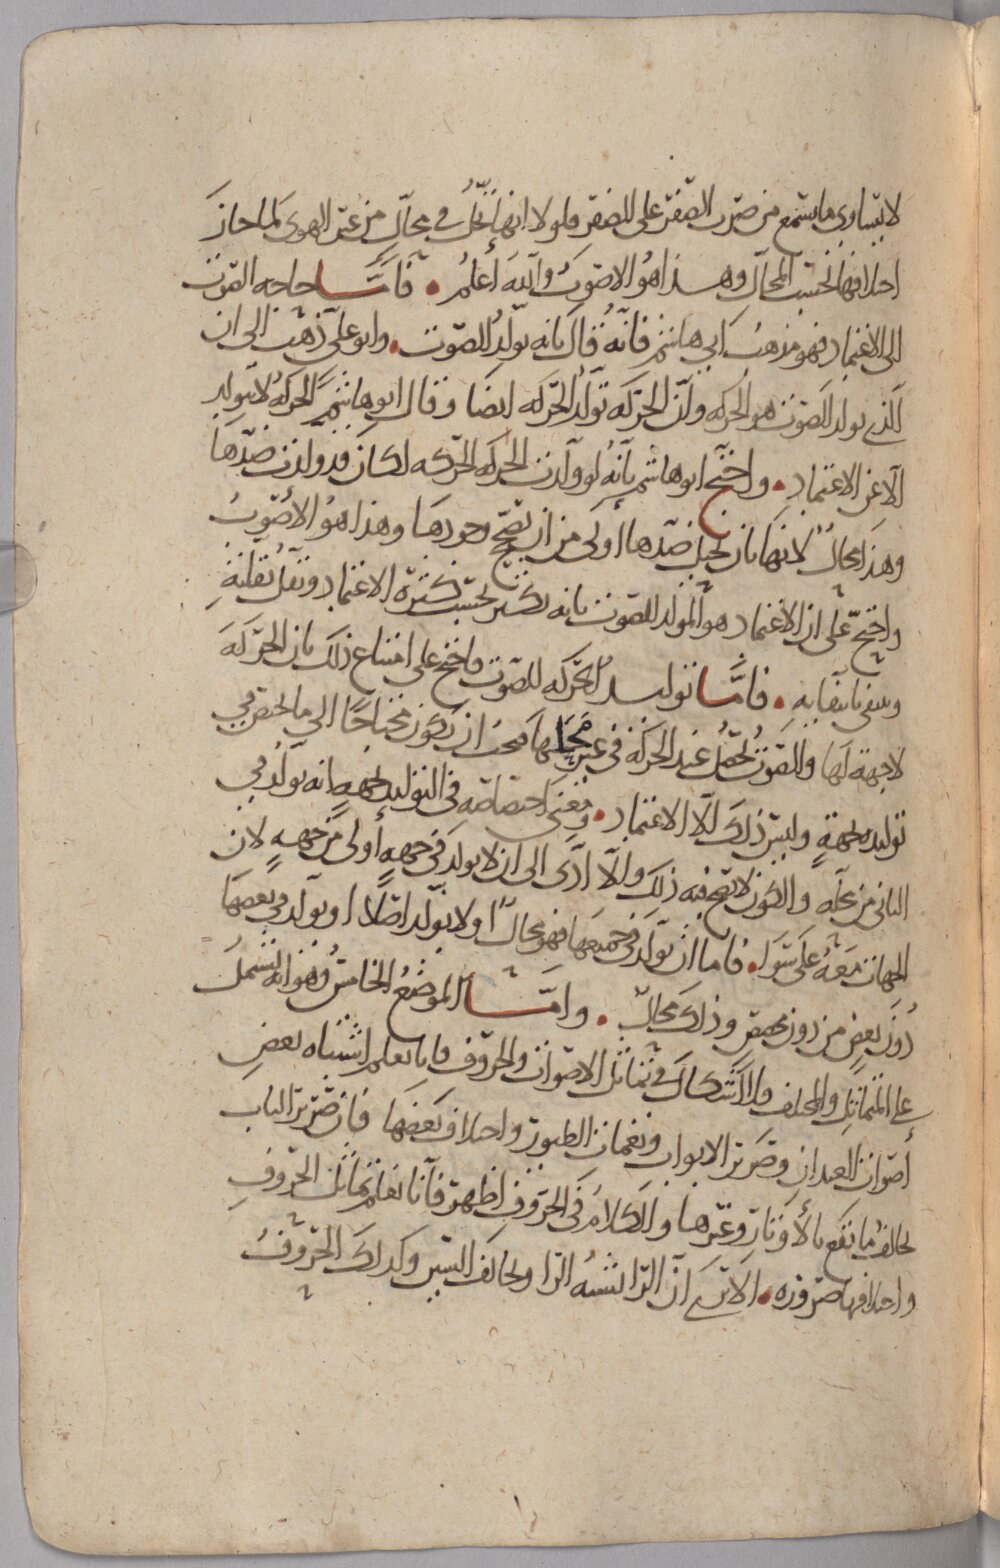 لا يتساوى ما يسمع من ضرب الصفر على الصفر ولولا انها تحل في محال من غير الهوى لما جاز
اختلافها بحسب المحال وهذا هو الاصوب والله أعلم • فأما حاجة الصوت
الى الاعتماد فهو مذهب ابي هاشم فانه قال بانه يولد الصوت • وابو علي ذهب الى ان
الذي يولد الصوت هو الحركه وان الحركه تولد الحركه ايضا وقال ابو هاشم الحركه لا تتولد
الا عن الاعتماد • واحتج ابو هاشم بأنه لو ولدت الحركه الحركه لكان قد ولدت ضدها
وهذا محال لانها بان تحيل ضدها أولى من ان تصحح وجودها وهذا هو الأصوب
واحتج على ان الاعتماد هو المولد للصوت بانه يكثر بحسب كثرة الاعتماد ويقل بقلته
وينتفي بانتفايه • فاما توليد الحركه للصوت فاحتج على امتناع ذلك بان الحركة
لا جهة لها والصوت يحصل عند الحركة في غير محلها فيجب ان يكون محتاجا الى ما يختص في
توليده بجهةٍ وليس ذلك الا الاعتماد • ومعنى اختصاصه في التوليد بجهةٍ انه يولد في
الثاني من محله والكون لا يصح فيه ذلك والا أدى الى ان لا يولد في جهةٍ أولى من جهةٍ لان
الجهات معه على سوا • فاما ان يولد في جميعها فهو محال او لا يولد اصلا او يولد في بعضها
دون بعض من دون مخصص وذلك محال • واما الموضع الخامس وهو انه يشتمل
على المتماثل والمختلف فلا اشكال في تماثل الاصوات والحروف فإنا نعلم اشتباه بعض
أصوات العيدان وصرير الابواب ونغمات الطيور واختلاف بعضها فان صرير الباب
يخالف ما يقع بالأوتار وغيرها والكلام في الحروف اظهر فانا نعلم تماثل الحروف
واختلافها ضروره • الا ترى ان الرا تشبه الرا وتخالف السين وكذلك الحروف